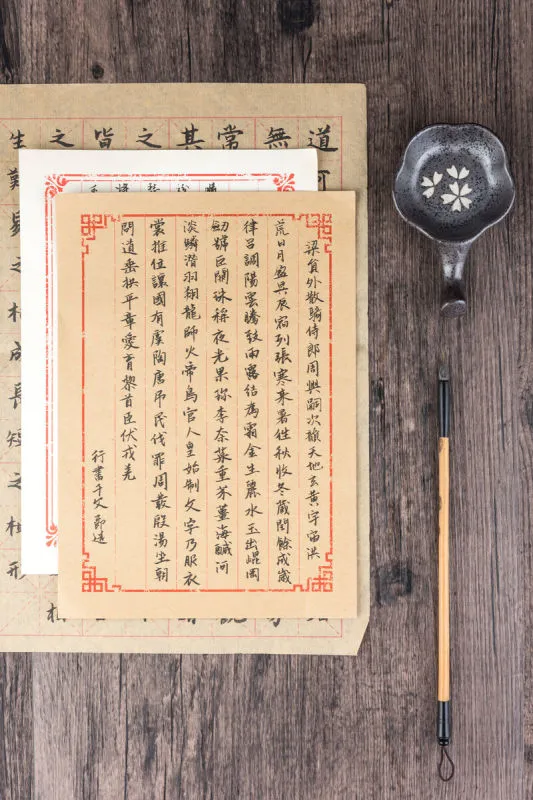 梁員外散騎侍郎周興嗣次韻天地玄黃宇宙洪
荒日月盈昃辰宿列張寒來暑往秋收冬藏閏餘成歲
律呂調陽雲騰致雨露結為霜金生麗水玉出崐岡
劍號巨闕珠稱夜光果珍李柰菜重芥薑海鹹河
淡鱗潛羽翔龍師火帝鳥官人皇始制文字乃服衣
裳推位讓國有虞陶唐弔民伐罪周發殷湯坐朝
問道垂拱平章愛育黎首臣伏戎羌
行書千文節選
道可
無
常
其
之
皆
之
生難易之相成長短之相形